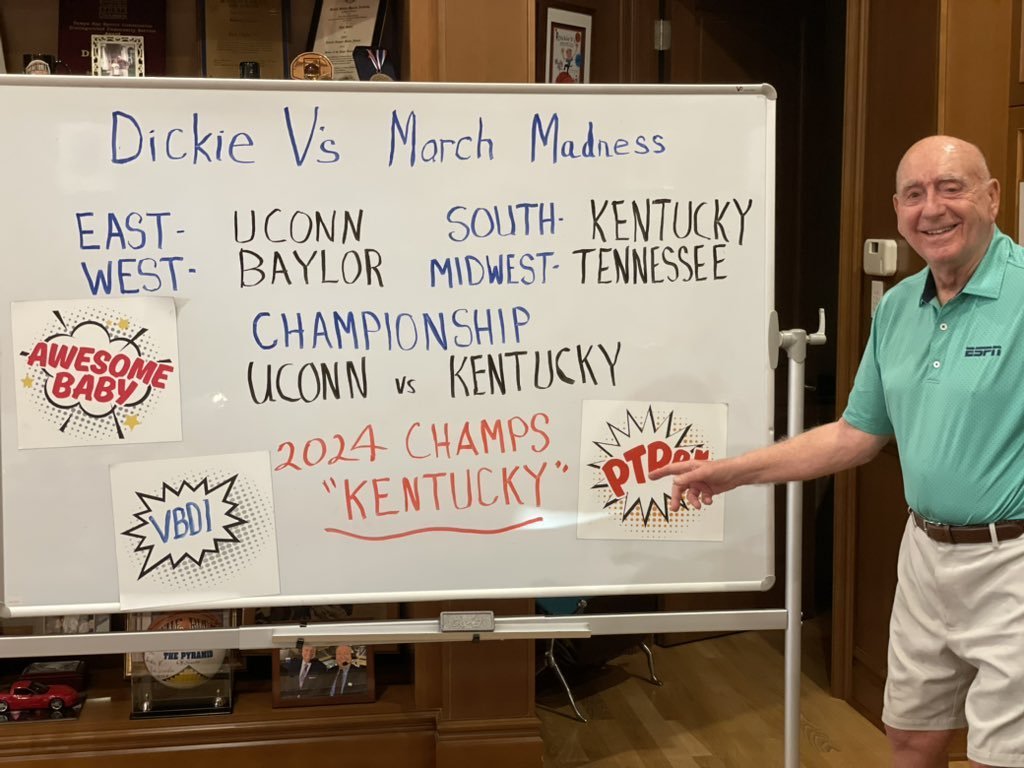 Dickie V's March Madness
EAST- UCONN SOUTH- KENTUCKY
WEST- BAYLOR MIDWEST- TENNESSEE
CHAMPIONSHIP
UCONN vs KENTUCKY
2024 CHAMPS
"KENTUCKY"
AWESOME
BABY
VBDI
ESPN
THE PYRAMID